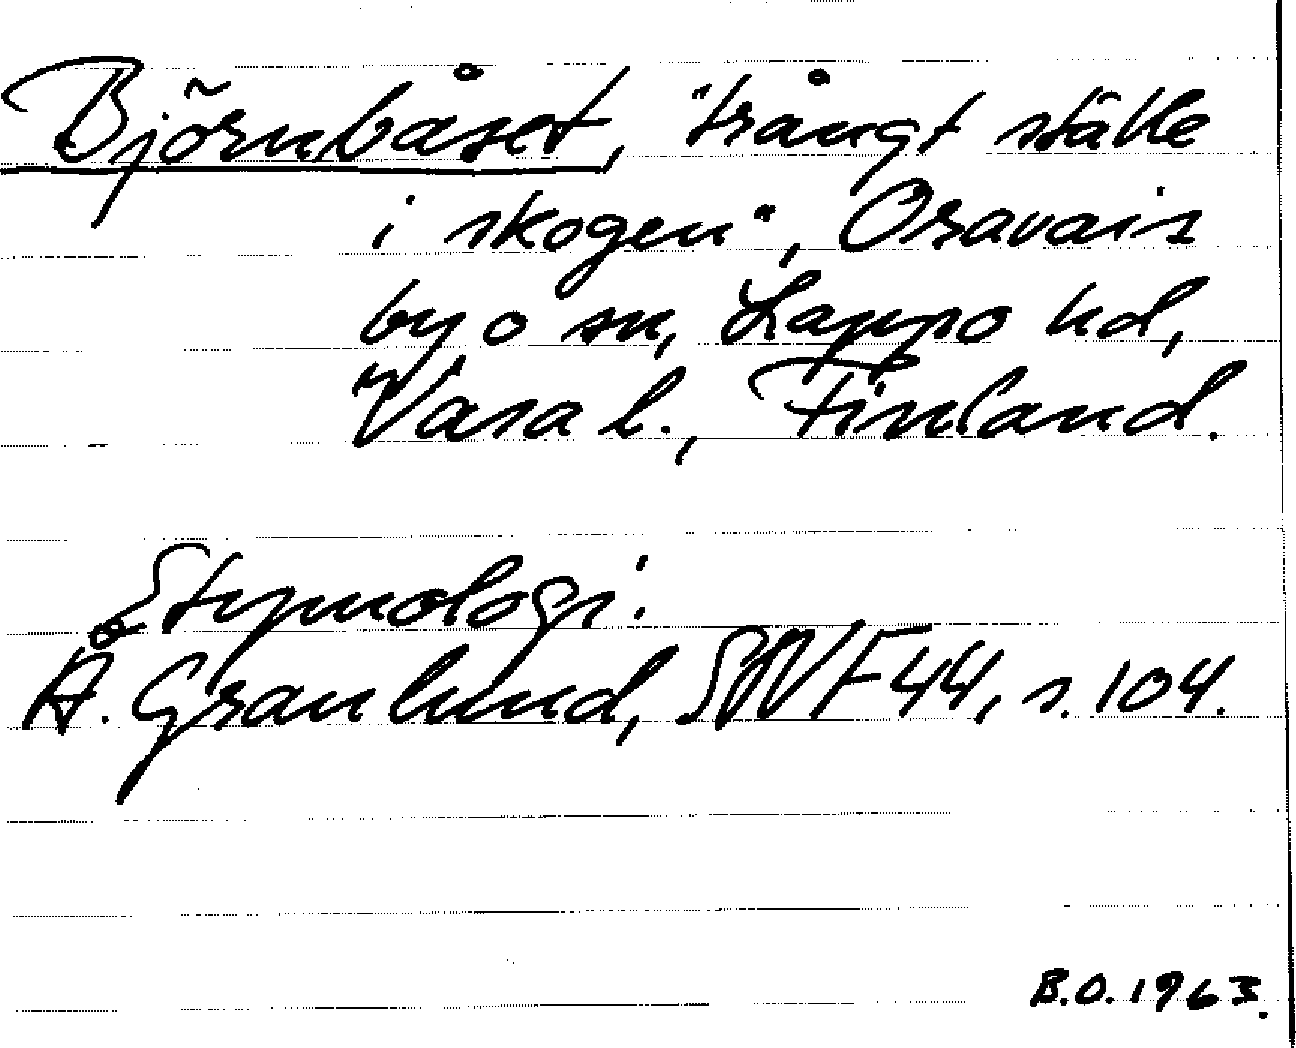 Björnbåset, "trångt ställe
i skogen", Oravais
by o sn, Lappo hd,
Vasa l., Finland.
Etymologi:
Å. Granlund, SNF 44, s. 104.
B.O. 1963.